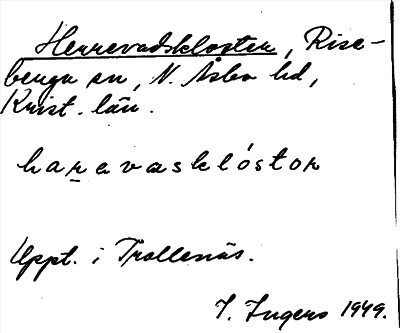 Herrevadskloster, Rise-
berga sn, N. Åsbo hd,
Krist. län.
haravasklóstor
Uppt. i Trollenäs.
I. Ingers 1949.